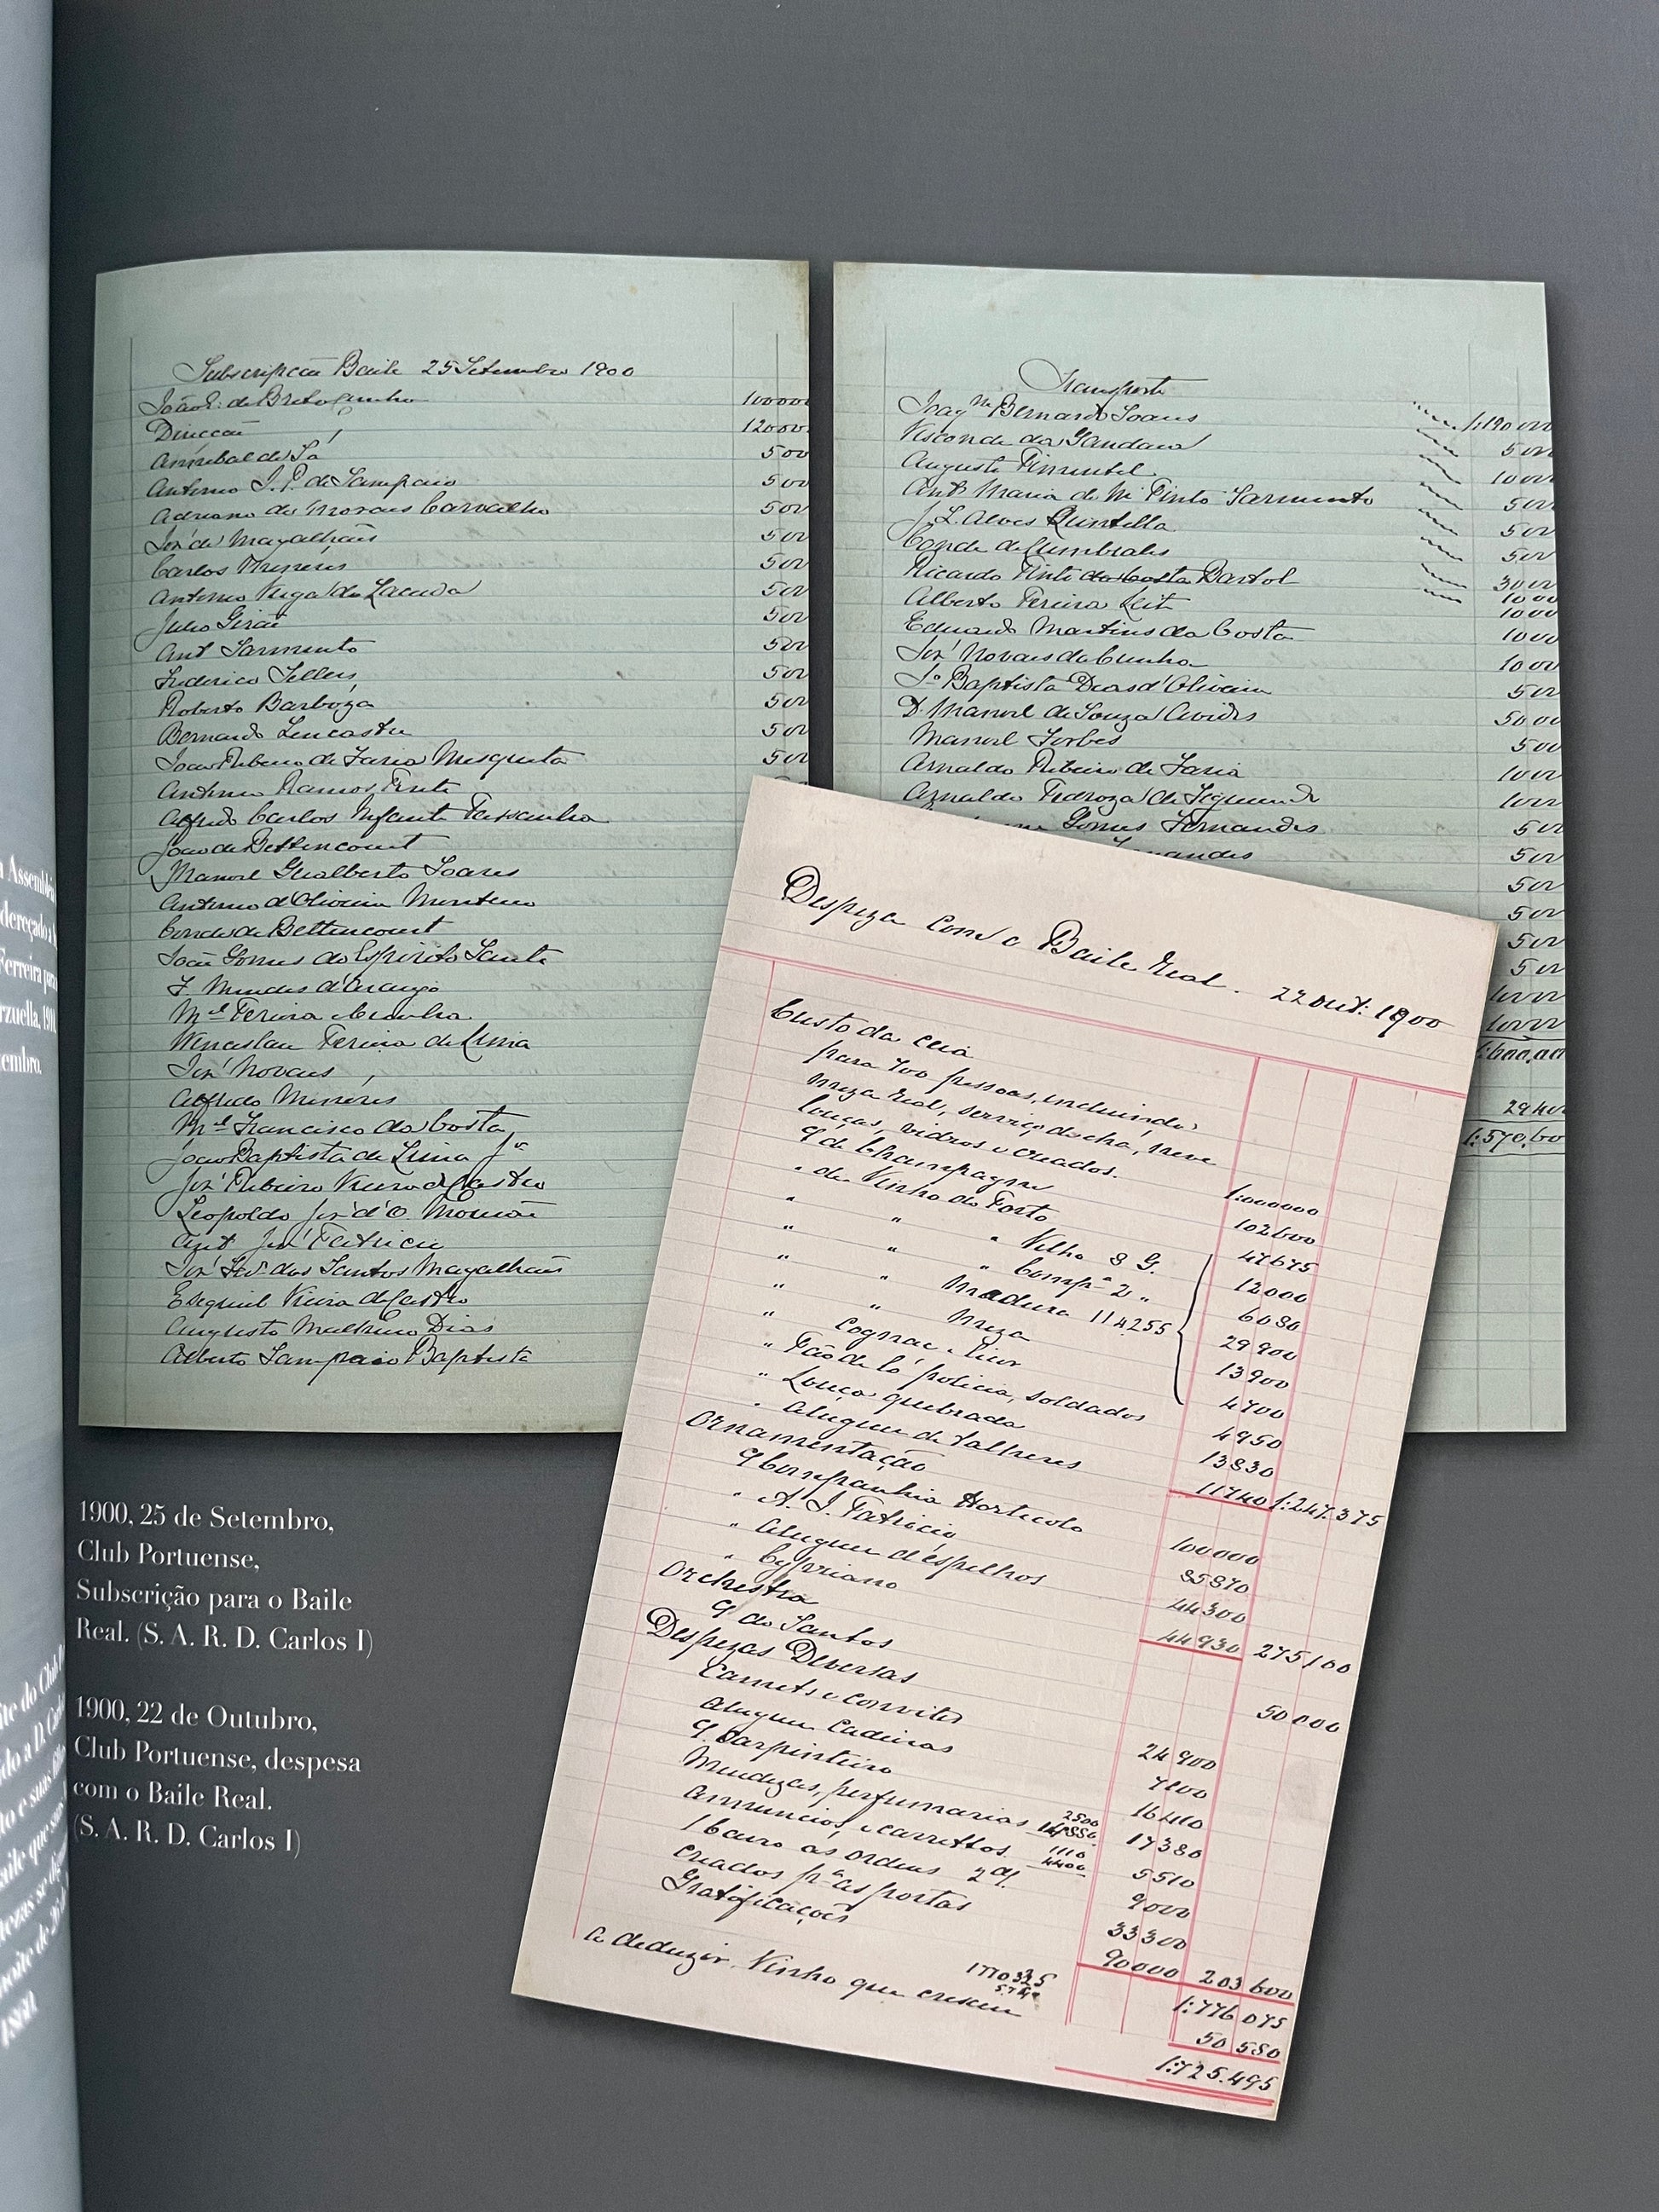 Subscripção Baile 25 Setembro 1900
100000
Direcção 12000
Annibal de Sá 500
Antonio J. P. de Sampaio 500
Adriano de Moraes Carvalho 500
José de Magalhães 500
Carlos Menéres 500
Antonio Veiga de Lacerda 500
Julio Girão 500
Ant Sarmento 500
Frederico Sellers 500
Roberto Barboza 500
Bernardo Lencastre 500
João Ribeiro de Faria Mesquita 500
Antonio Ramos Pinto
Alfredo Carlos Infante Passanha
João de Bettencourt
Manoel Gualberto Soares
Antonio d'Oliveira Monteiro
Conde de Bettencourt
João Gomes do Espirito Santo
F Mendes d'Araujo
Mel Pereira
Wenceslau Pereira de Lima
José Novaes
Alfredo Menéres
Mel Francisco da Costa
João Baptista de Lima Jor
José Ribeiro Vieira de Castro
Leopoldo José d'O. Mourão
Ant José Patricio
José dos Santos Magalhães
Esequiel Vieira de Castro
Augusto Dias
Alberto Sampaio Baptista
Transporte 1:190 000
Joaqm Bernardo Soares 500
Visconde da Gandara 1000
Augusto Pimentel 500
Anto Maria de M Pinto Sarmento 500
J. L. Alves Quintella 500
Conde de 3000
Ricardo Pinto da Costa Bartol 1000
Alberto Pereira Leite 1000
Eduardo Martins da Costa 1000
José Novaes da Cunha 1000
Jo Baptista Dias d'Oliveira 500
D. Manoel de Souza 5000
Manoel Forbes 500
Arnaldo Ribeiro de Faria 1000
Arnaldo Pedroza de 1000
Gomes Fernandes 500
500
500
500
500
500
1000
1000
1:570,60
Despeza com o Baile Real. 22 out: 1900
Custo da ceia
para 700 pessoas, incluindo
meza real, serviço de chá, neve
louças, vidros e creados. 1:000000
q de Champagne 102600
" de Vinho do Porto 47675
" " " Velho 8 G. 12000
" " " Compa 2 " 6080
" " Madura 114255 29900
" " meza 13900
" Cognac e licor 4700
" Pão de ló policia, soldados 4950
" Louça quebrada 13830
" Aluguer de talheres 11740 1:247.375
Ornamentação
q Companhia Horticola 100000
" A. J. Patricio 85870
" Aluguer d'espelhos 44300
" Cypriano 44930 275100
Orchestra
q do Santos 50000
Despezas Diversas
Carnets e convites 24900
Aluguer Cadeiras 7100
q Carpinteiro 16410
Miudezas, perfumarias 2500 17380
Annuncios e carretos 1110 4400 5510
1 carro ás ordens 2 9000
Creados pa as portas 33300
Gratificações 90000 203600
1:776075
A deduzir, Vinho que cresceu 50580
1:725.495
1900, 25 de Setembro,
Club Portuense,
Subscrição para o Baile
Real. (S. A. R. D. Carlos I)
1900, 22 de Outubro,
Club Portuense, despesa
com o Baile Real.
(S. A. R. D. Carlos I)